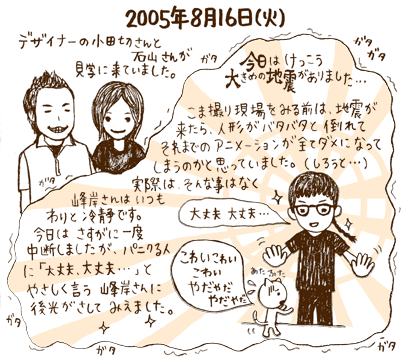 2005年8月16日(火)
デザイナーの小田切さんと
石山さんが
見学に来ていました。
ガタ
ガタ
ガタ
ガタ
今日はけっこう
大きめの地震がありました…
こま撮り現場をみる前は、地震が
来たら、人形がバタバタと倒れて
それまでのアニメーションが全てダメになって
しまうのかと思っていました。(しろうと…)
実際は、そんな事はなく
ガタ
ガタ
峰岸さんはいつも
わりと冷静です。
今日はさすがに一度
中断しましたが、パニクる人
に「大丈夫、大丈夫…」と
やさしく言う峰岸さんに
後光がさしてみえました。
大丈夫 大丈夫…
こわいこわい
こわい
やだやだ
やだやだ
あたふた
ガタ
ガタ
ガタ
ガタ